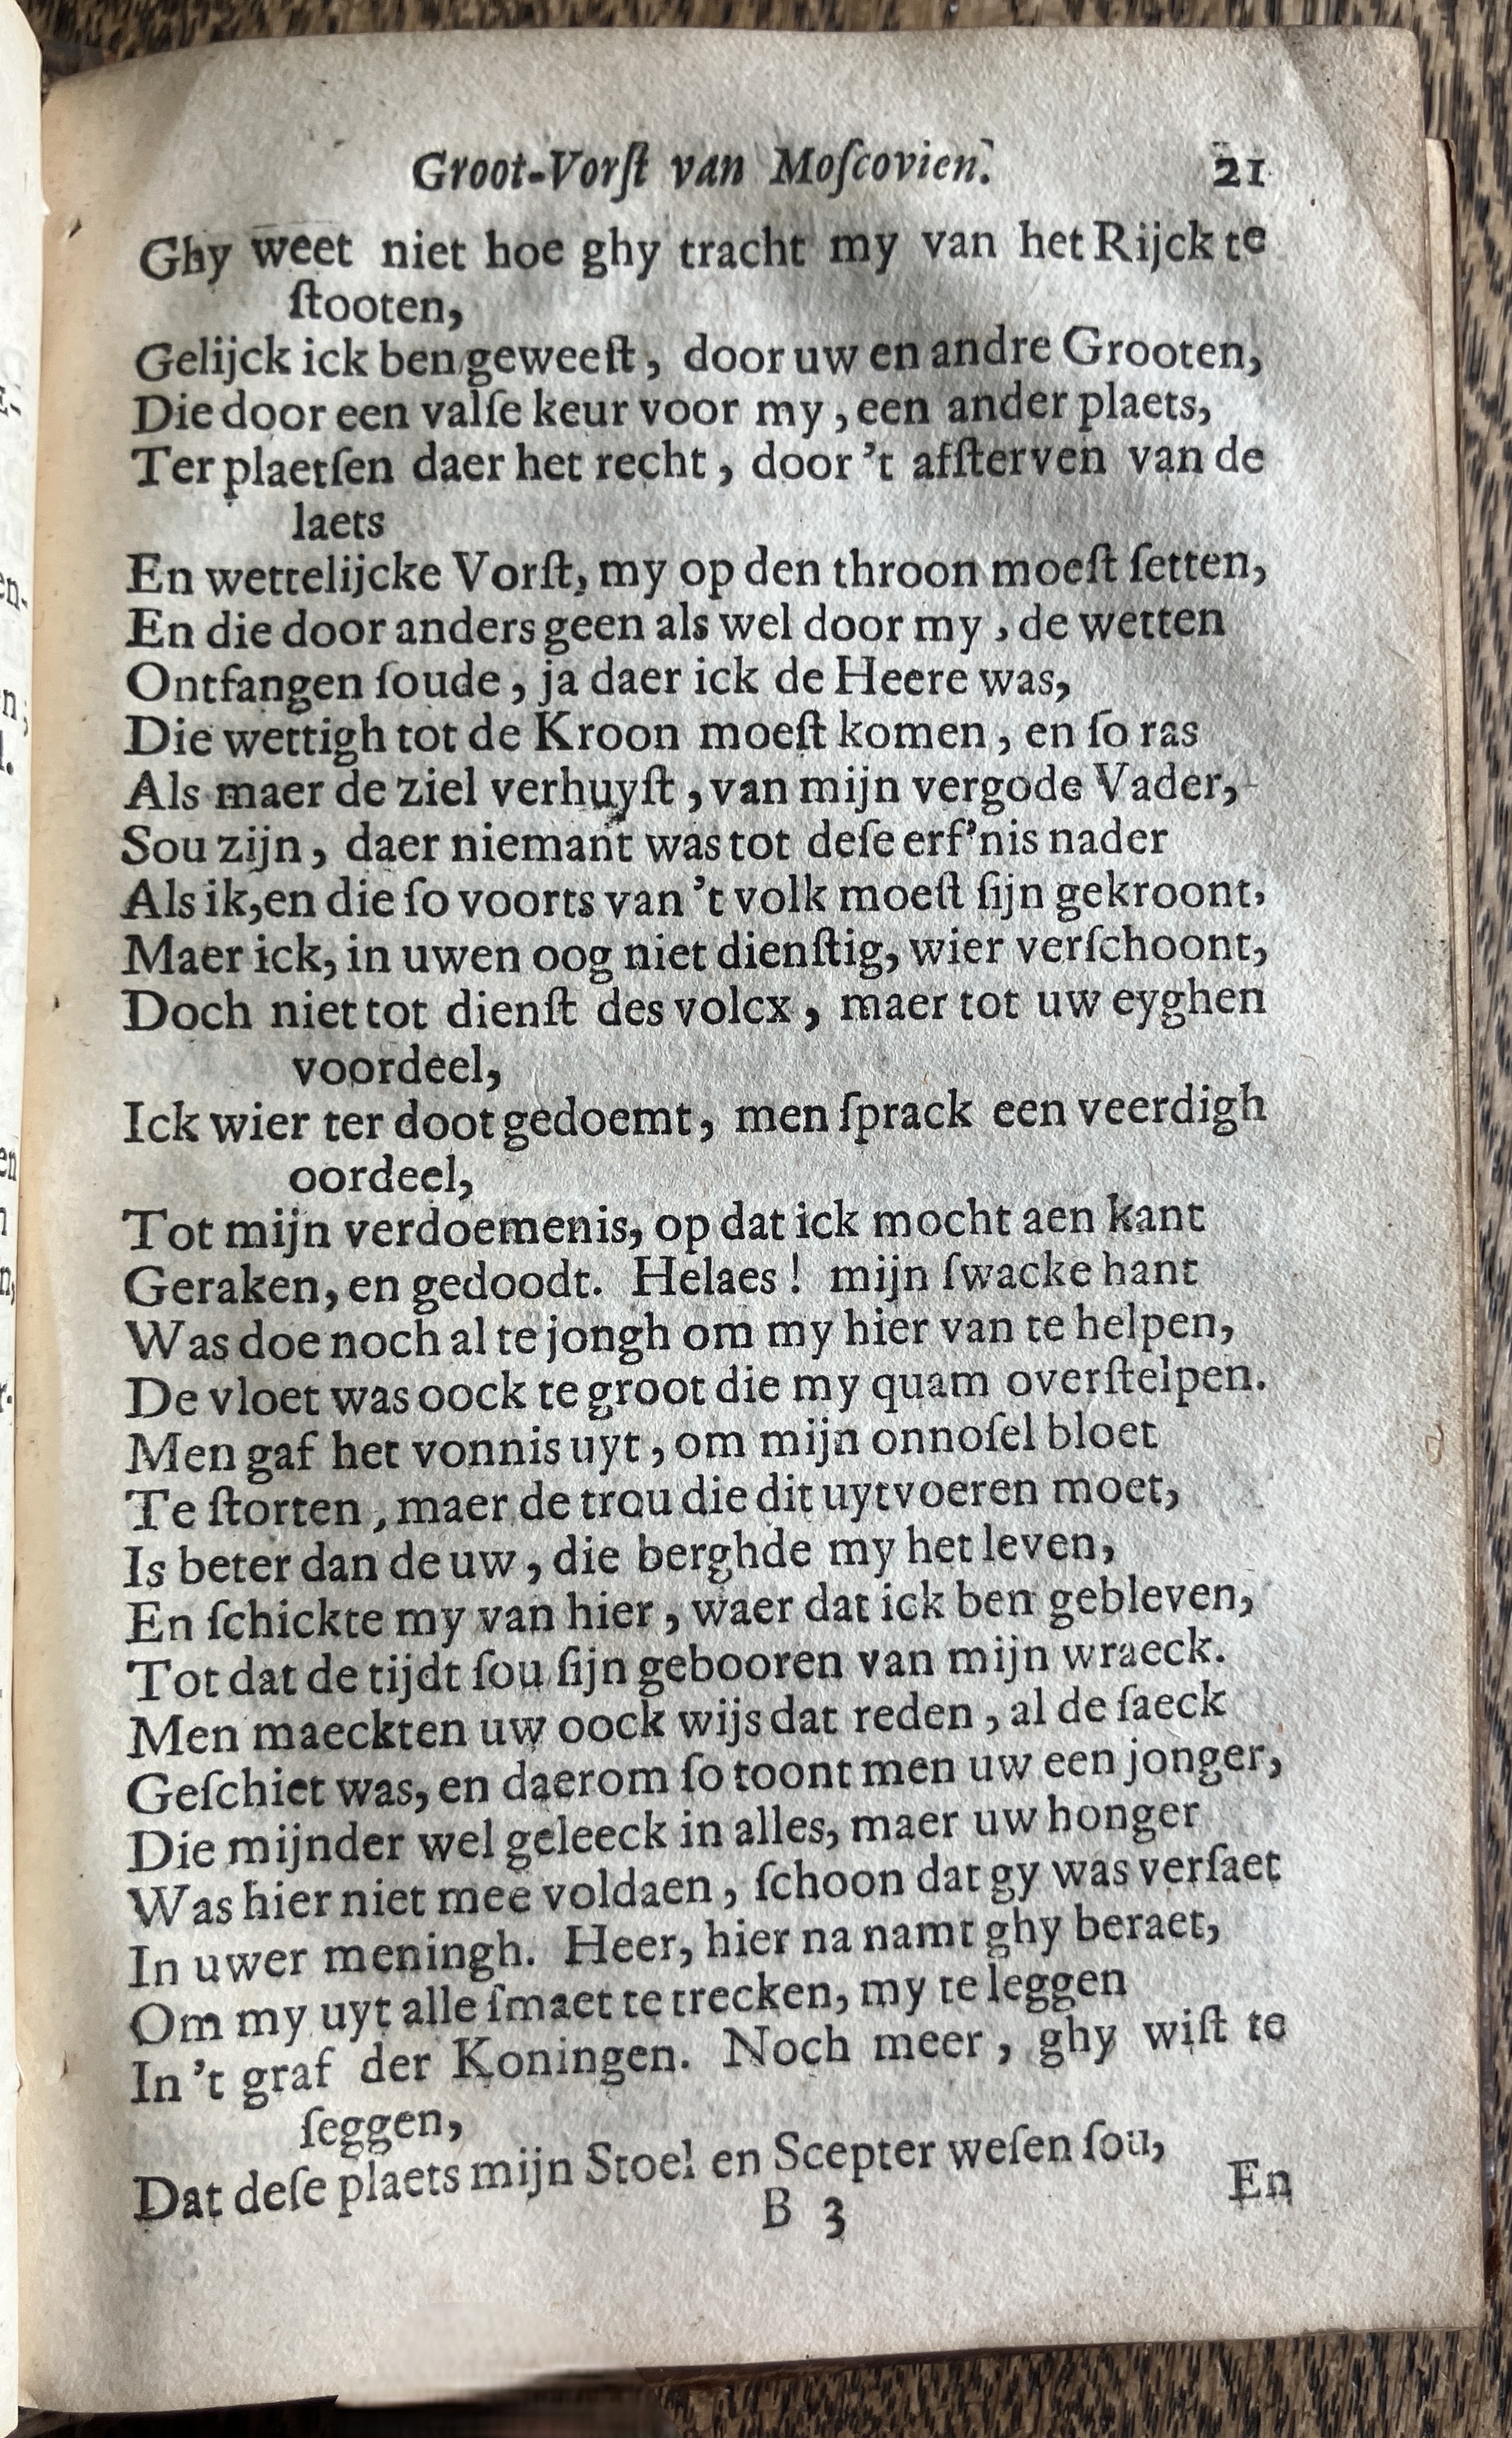 Groot-Vorſt van Moſcovien. 21
Ghy weet niet hoe ghy tracht my van het Rijck te
ſtooten,
Gelijck ick ben geweeſt, door uw en andre Grooten,
Die door een valſe keur voor my, een ander plaets,
Ter plaetſen daer het recht, door 't afſterven van de
laets
En wettelijcke Vorſt, my op den throon moeſt ſetten,
En die door anders geen als wel door my, de wetten
Ontfangen ſoude, ja daer ick de Heere was,
Die wettigh tot de Kroon moeſt komen, en ſo ras
Als maer de ziel verhuyſt, van mijn vergode Vader,
Sou zijn, daer niemant was tot deſe erf'nis nader
Als ik, en die ſo voorts van 't volk moeſt ſijn gekroont,
Maer ick, in uwen oog niet dienſtig, wier verſchoont,
Doch niet tot dienſt des volcx, maer tot uw eyghen
voordeel,
Ick wier ter doot gedoemt, men ſprack een veerdigh
oordeel,
Tot mijn verdoemenis, op dat ick mocht aen kant
Geraken, en gedoodt. Helaes! mijn ſwacke hant
Was doe noch al te jongh om my hier van te helpen,
De vloet was oock te groot die my quam overſtelpen.
Men gaf het vonnis uyt, om mijn onnoſel bloet
Te ſtorten, maer de trou die dit uytvoeren moet,
Is beter dan de uw, die berghde my het leven,
En ſchickte my van hier, waer dat ick ben gebleven,
Tot dat de tijdt ſou ſijn gebooren van mijn wraeck.
Men maeckten uw oock wijs dat reden, al de ſaeck
Geſchiet was, en daerom ſo toont men uw een jonger,
Die mijnder wel geleeck in alles, maer uw honger
Was hier niet mee voldaen, ſchoon dat gy was verſaet
In uwer meningh. Heer, hier na namt ghy beraet,
Om my uyt alle ſmaet te trecken, my te leggen
In 't graf der Koningen. Noch meer, ghy wiſt te
ſeggen,
Dat deſe plaets mijn Stoel en Scepter weſen ſou,
B 3 En